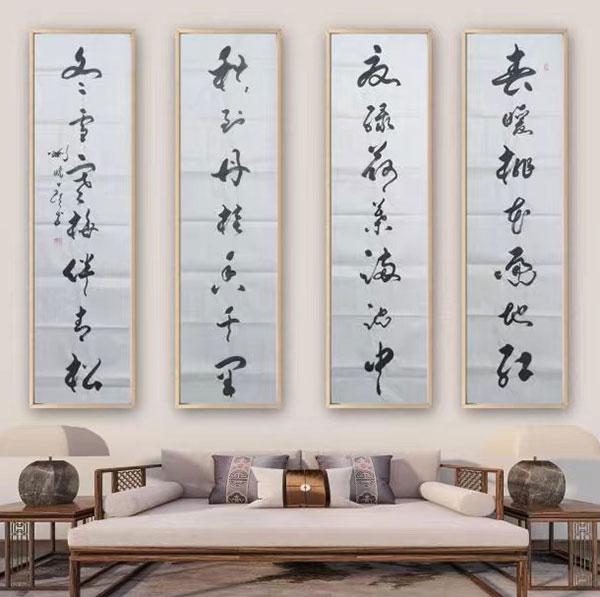 春暖桃花遍地红
夏绿荷叶满池中
秋到丹桂香千里
冬雪寒梅伴青松